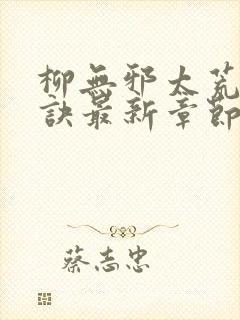 柳無邪太荒
訣最新章節
蔡志忠